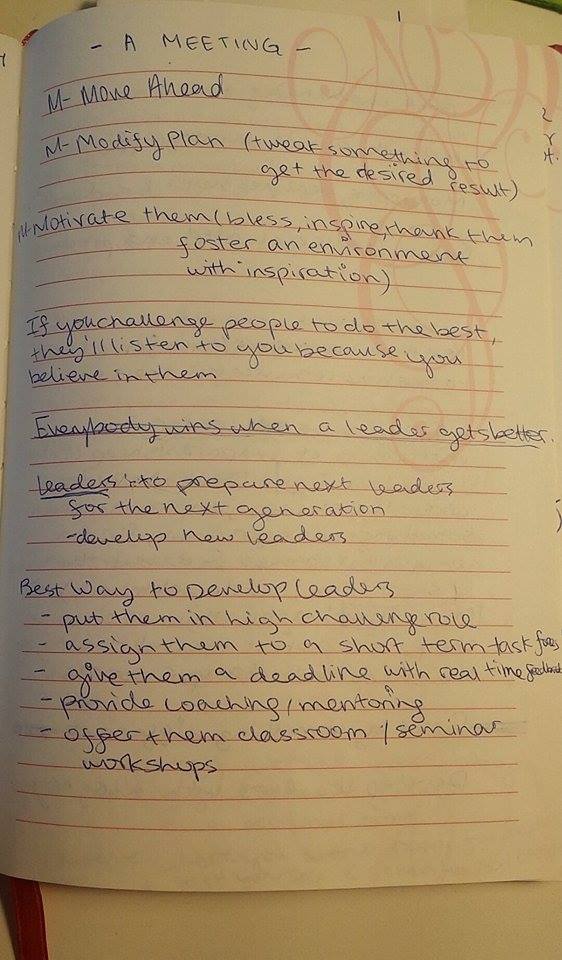 - A MEETING -
M- Move Ahead
M- Modify Plan (tweak something to
get the desired result)
M- Motivate them (bless, inspire, thank them
foster an environment
with inspiration)
If you challenge people to do the best,
they'll listen to you because you
believe in them
Everybody wins when a leader gets better.
leaders: to prepare next leaders
for the next generation
- develop new leaders
Best Way to Develop leaders
- put them in high challenge role
- assign them to a short term task
- give them a deadline with real time feedback
- provide coaching / mentoring
- offer them classroom / seminar
workshops